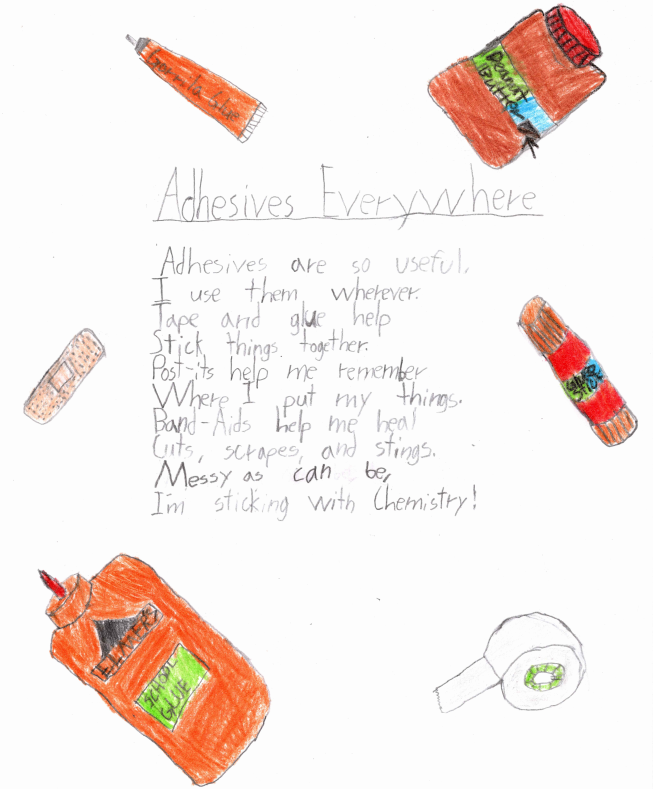 Glue
Peanut
Butter
Adhesives Everywhere
Adhesives are so useful.
I use them wherever.
Tape and glue help
Stick things together.
Post-its help me remember
Where I put my things.
Band-Aids help me heal
Cuts, scrapes, and stings.
Messy as can be,
I'm sticking with Chemistry!
STICK
ELMER'S
SCHOOL
GLUE